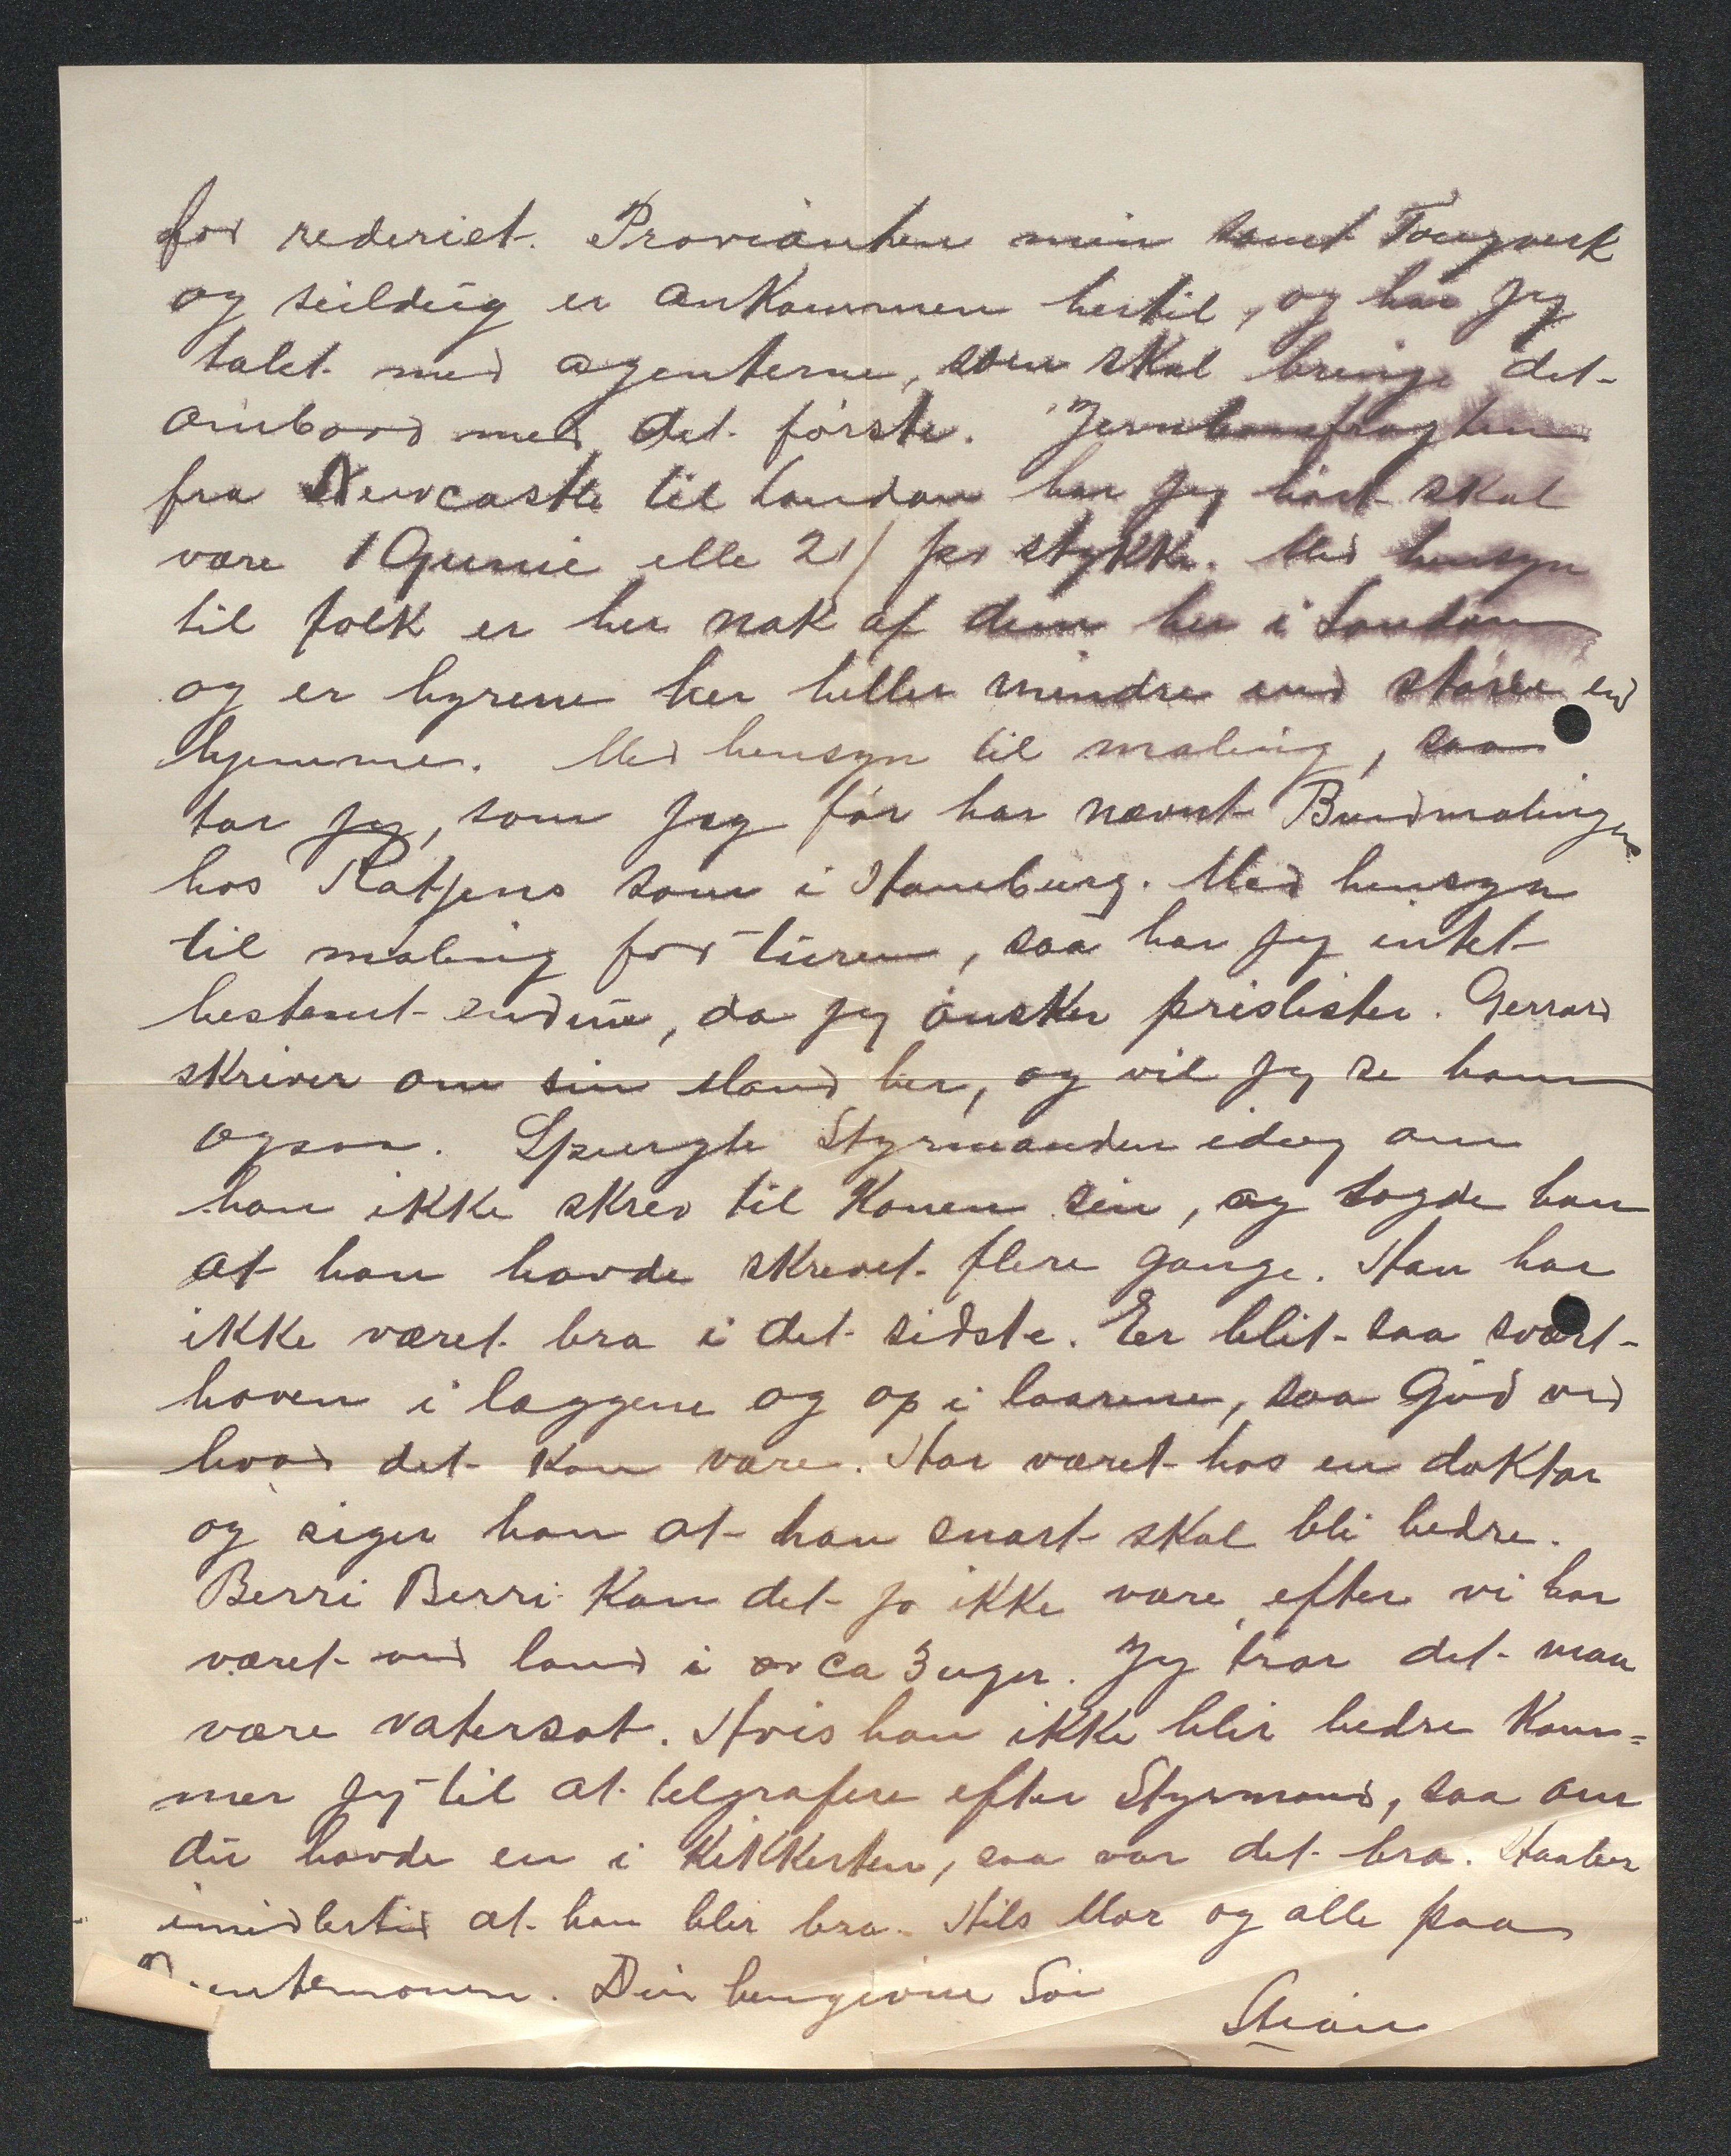 for rederiet. Provianten min samt Tougverk
og seildug er ankommen hertil, og har jeg
talet med agenterne, som skal bringe det
ombord med det første. Jernbanefragten
fra Newcastle til London har jeg hørt skal
være 1 Gunie elle 21/ pr stykke. Med hensyn
til folk er her nok af dem her i London
og er hyrene her heller mindre end større end
hjemme. Med hensyn til maling, saa
tar jeg, som jeg før har nævnt Bundmalingen
hos Ratjens som i Hamburg. Med hensyn
til maling for turen, saa har jeg intet
bestemt endnu, da jeg ønsker prislister. Gerrard
skriver om sin Mand her, og vil jeg se ham
ogsaa. Spurgte Styrmanden idag om
han ikke skrev til Konen sin, og sagde han
at han havde skrevet flere gange. Han har
ikke været bra i det sidste. Er blit saa svært
hoven i læggene og op i laarene, saa Gud ved
hvad det kan være. Har været hos en doktor
og siger han at han snart skal bli bedre.
Berri Berri kan det jo ikke være, efter vi har
været ved land i ca 3 uger. Jeg tror det maa
være vatersot. Hvis han ikke blir bedre kom=
mer jeg til at telgrafere efter Styrmand, saa om
du havde en i Kikkerten, saa var det bra. Haaber
imidlertid at han blir bra. Hils Mor og alle paa
Din hengivne Søn